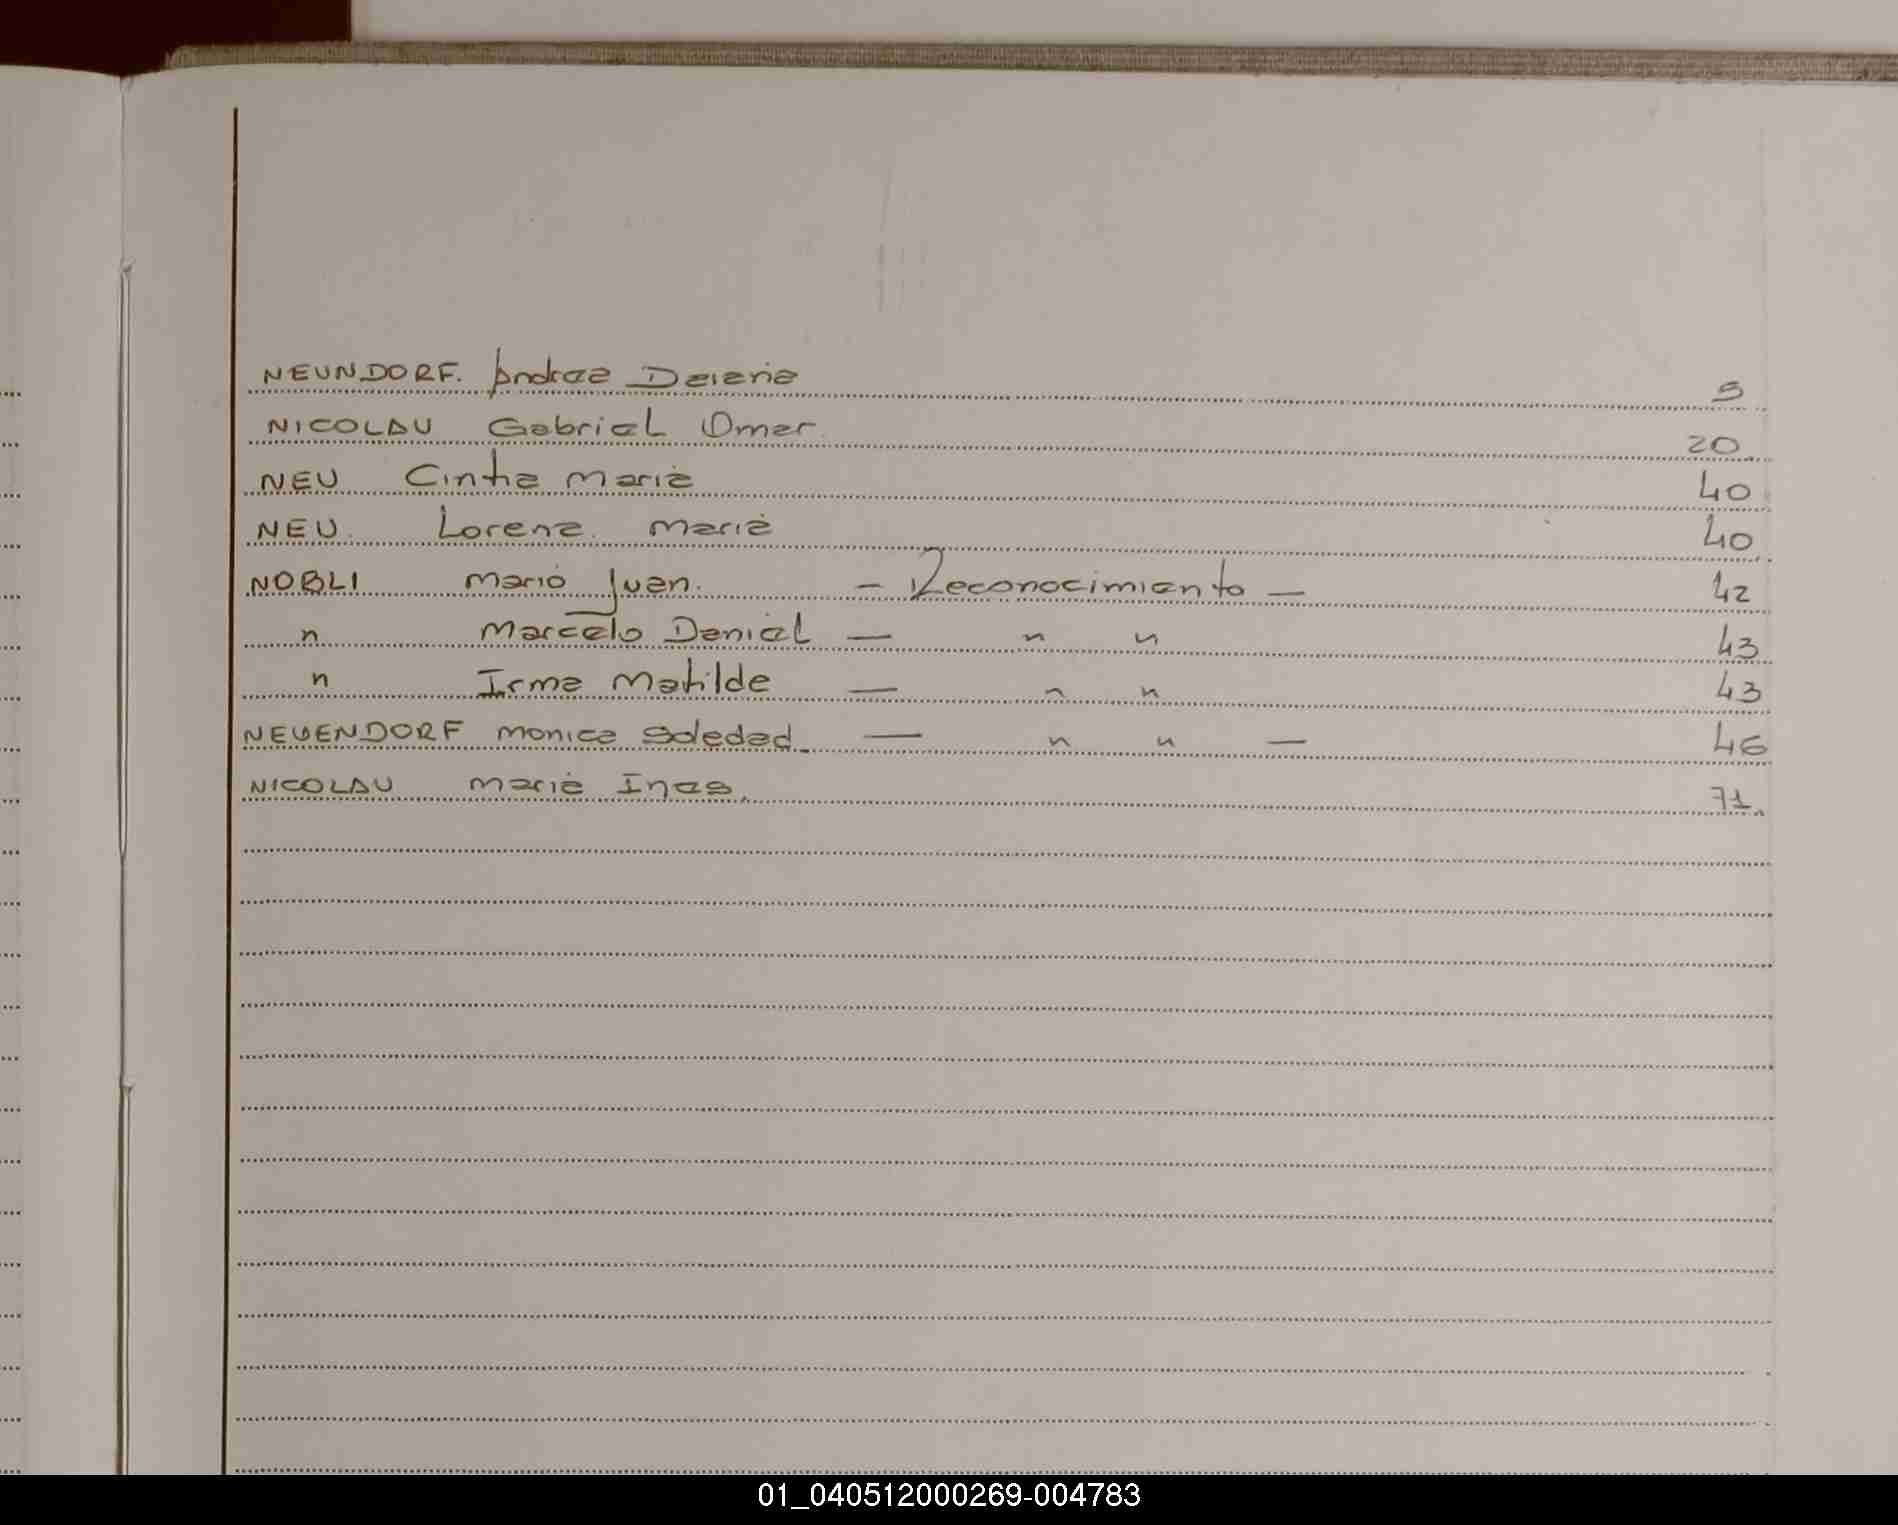 NEUNDORF. Andrea Daiana 9
NICOLAU Gabriel Omar. 20
NEU Cintia Maria 40
NEU. Lorena. Maria 40
NOBLI Mario Juan. - Reconocimiento - 42
" Marcelo Daniel - " " 43
" Irma Matilde - " " 43
NEUENDORF Monica Soledad - " " - 46
NICOLAU Maria Ines. 71.
01_040512000269-004783